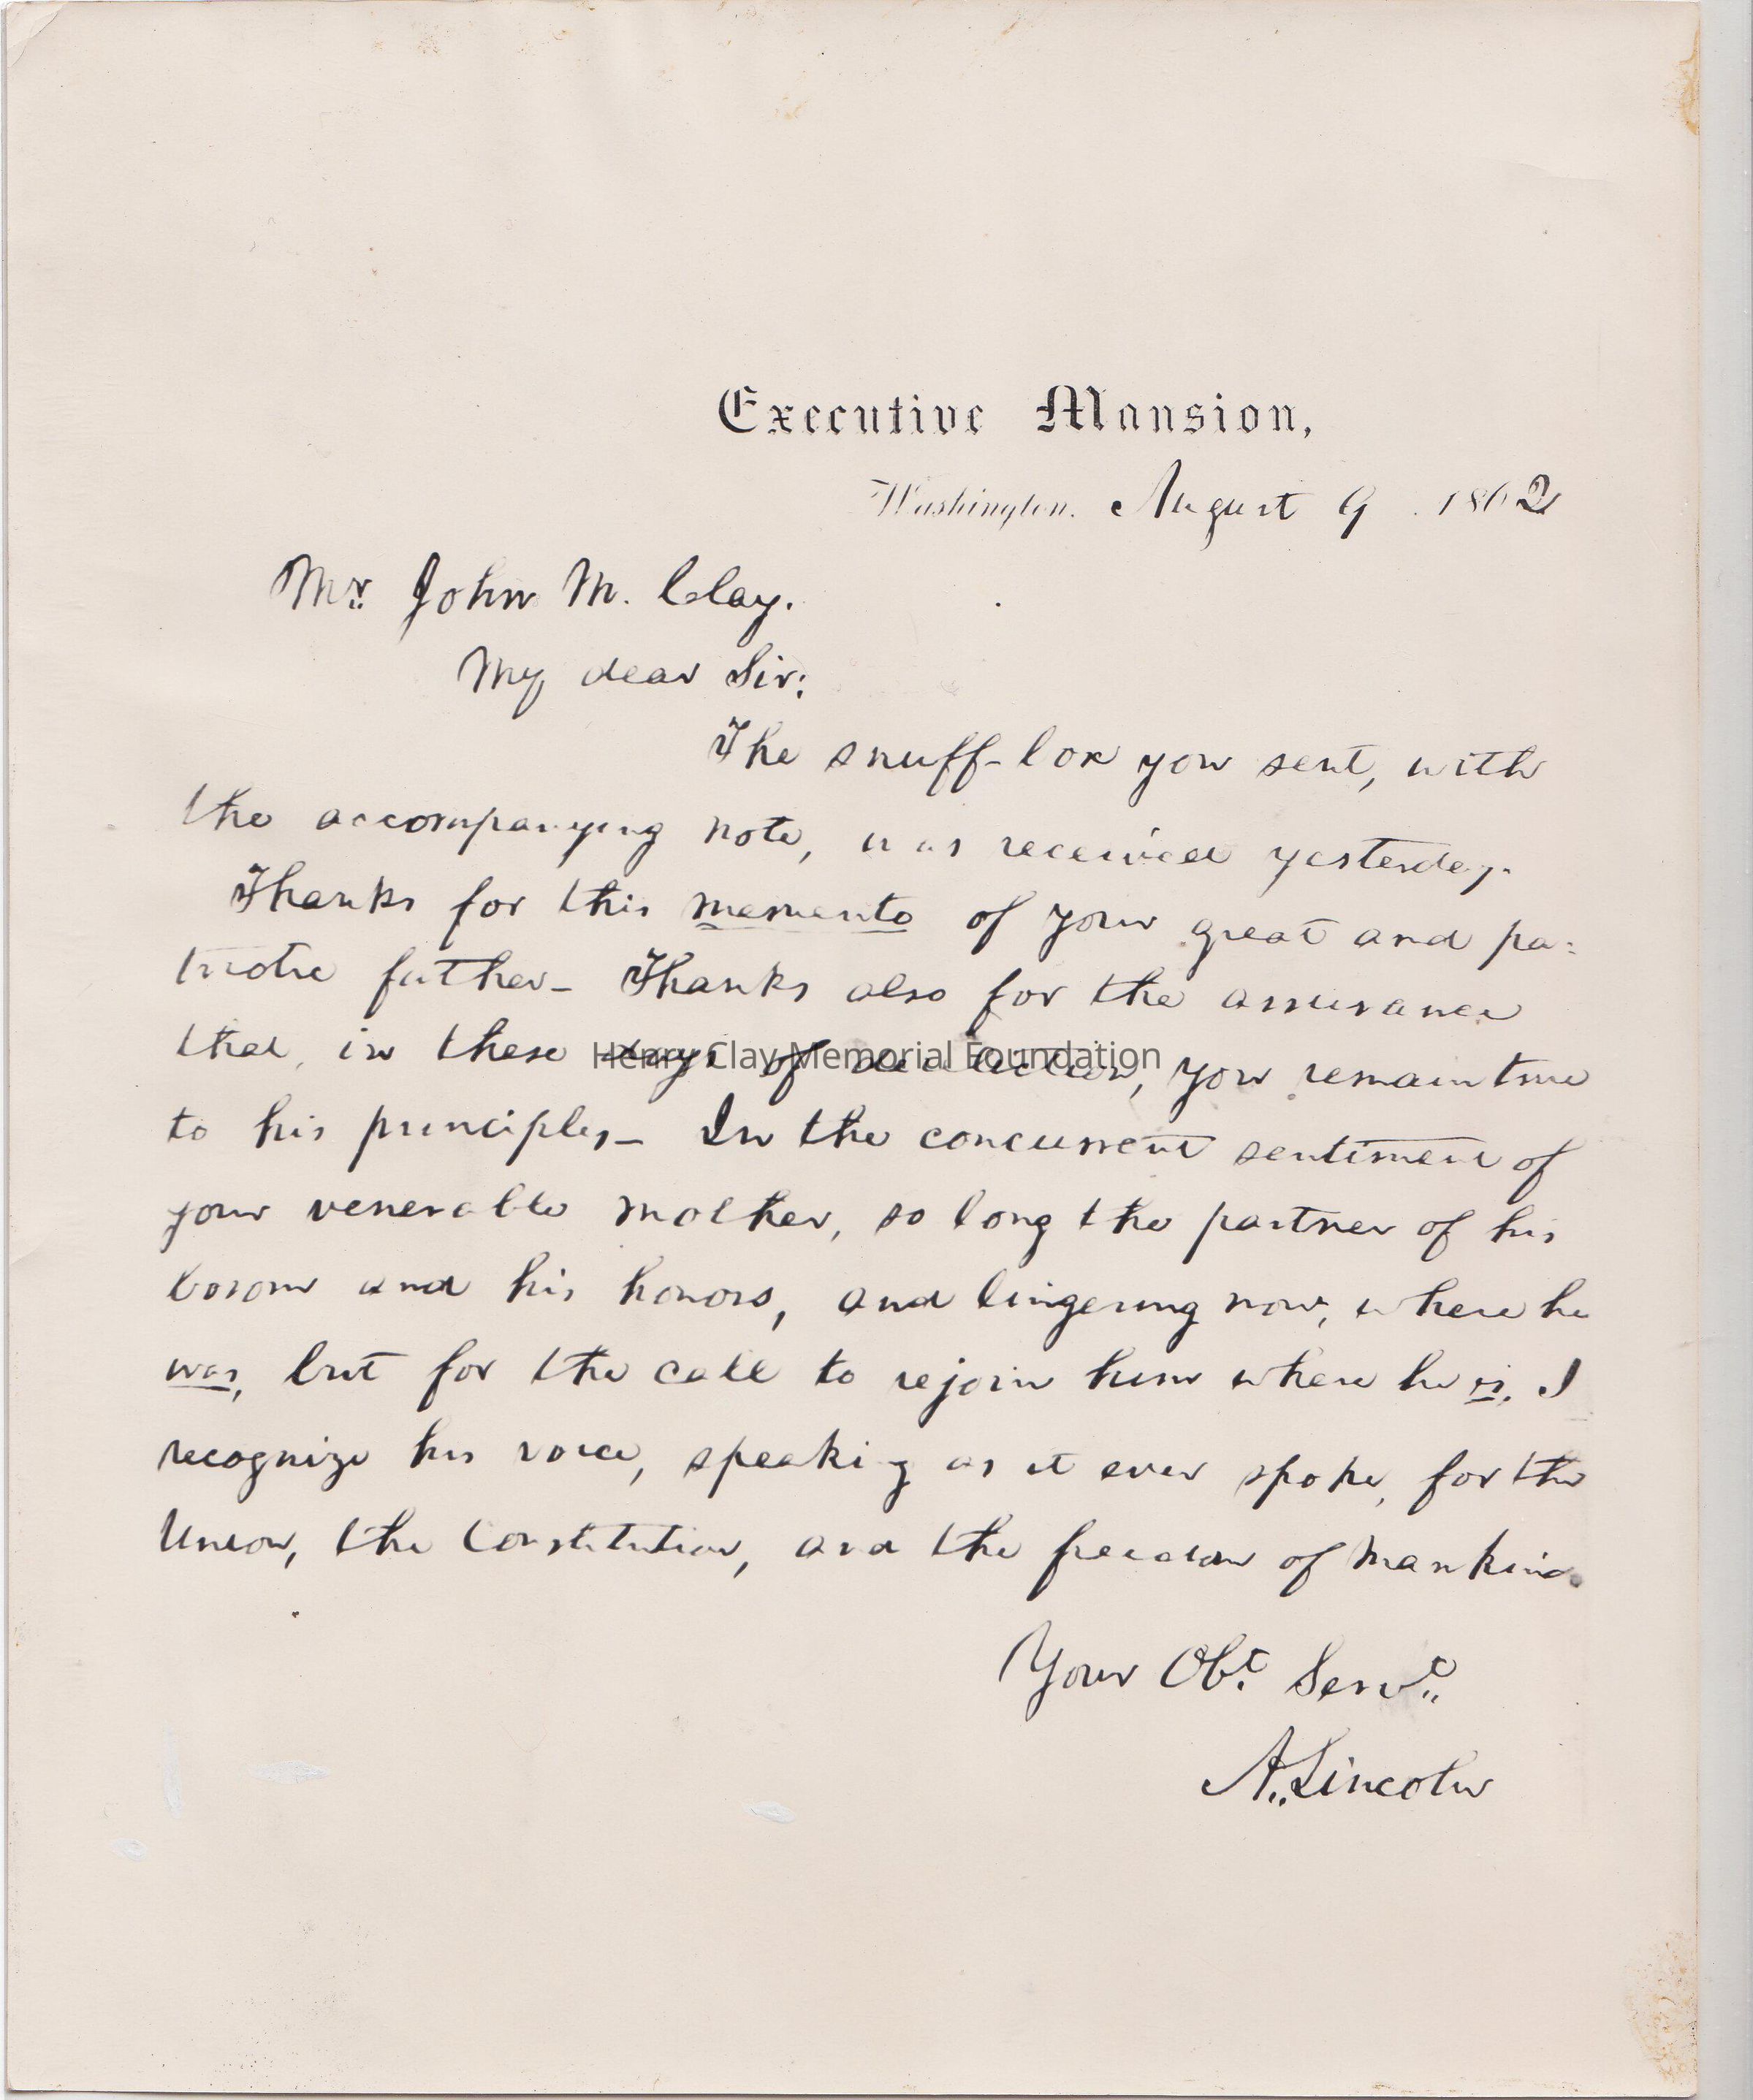 Executive Mansion,
Washington, August 9, 1862
Mr. John M. Clay.
My dear Sir:
The snuff-box you sent, with
the accompanying note, was received yesterday.
Thanks for this memento of your great and pa-
triotic father- Thanks also for the assurance
that, in these days of dereliction, you remain true
Henry Clay Memorial Foundation
to his principles- In the concurrent sentiment of
your venerable mother, so long the partner of his
bosom and his honors, and lingering now, where he
was, but for the call to rejoin him where he is, I
recognize his voice, speaking as it ever spoke, for the
Union, the Constitution, and the freedom of mankind.
Your Obt. Servt.
A. Lincoln